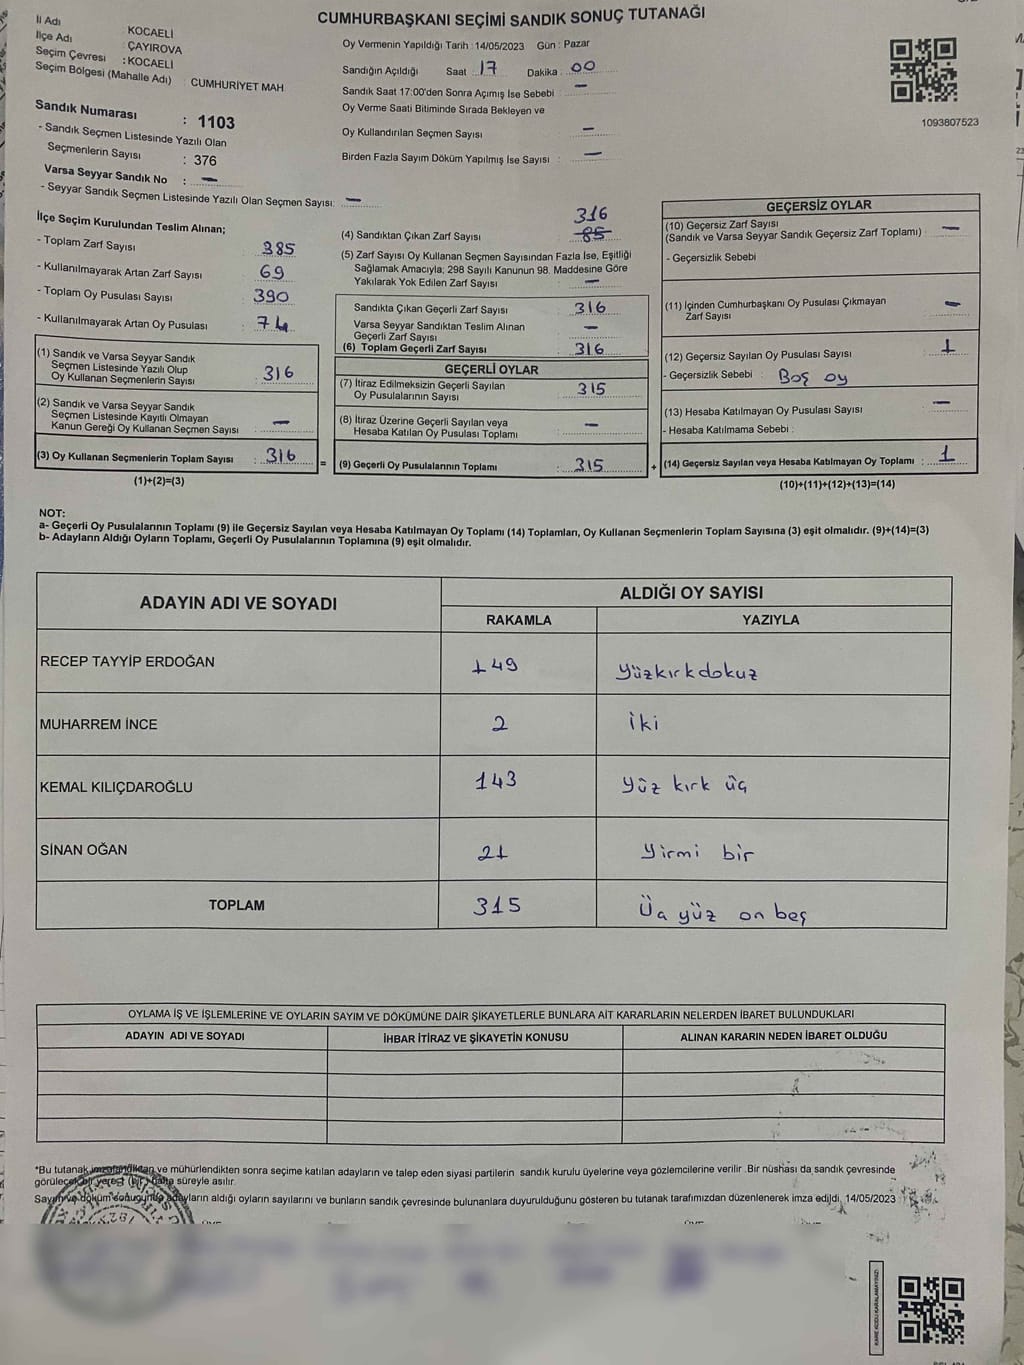 CUMHURBAŞKANI SEÇİMİ SANDIK SONUÇ TUTANAĞI
İl Adı : KOCAELİ
İlçe Adı : ÇAYIROVA
Seçim Çevresi : KOCAELİ
Seçim Bölgesi (Mahalle Adı) : CUMHURİYET MAH
Sandık Numarası : 1103
- Sandık Seçmen Listesinde Yazılı Olan
Seçmenlerin Sayısı : 376
Varsa Seyyar Sandık No : —
- Seyyar Sandık Seçmen Listesinde Yazılı Olan Seçmen Sayısı: —
Oy Vermenin Yapıldığı Tarih : 14/05/2023 Gün : Pazar
Sandığın Açıldığı Saat 17 Dakika 00
Sandık Saat 17:00'den Sonra Açımış İse Sebebi : —
Oy Verme Saati Bitiminde Sırada Bekleyen ve
Oy Kullandırılan Seçmen Sayısı —
Birden Fazla Sayım Döküm Yapılmış İse Sayısı : —
1093807523
İlçe Seçim Kurulundan Teslim Alınan;
- Toplam Zarf Sayısı : 385
- Kullanılmayarak Artan Zarf Sayısı : 69
- Toplam Oy Pusulası Sayısı : 390
- Kullanılmayarak Artan Oy Pusulası : 74
(1) Sandık ve Varsa Seyyar Sandık
Seçmen Listesinde Yazılı Olup
Oy Kullanan Seçmenlerin Sayısı : 316
(2) Sandık ve Varsa Seyyar Sandık
Seçmen Listesinde Kayıtlı Olmayan
Kanun Gereği Oy Kullanan Seçmen Sayısı : —
(3) Oy Kullanan Seçmenlerin Toplam Sayısı : 316
(1)+(2)=(3)
316
(4) Sandıktan Çıkan Zarf Sayısı : 85
(5) Zarf Sayısı Oy Kullanan Seçmen Sayısından Fazla İse, Eşitliği
Sağlamak Amacıyla; 298 Sayılı Kanunun 98. Maddesine Göre
Yakılarak Yok Edilen Zarf Sayısı : —
Sandıkta Çıkan Geçerli Zarf Sayısı : 316
Varsa Seyyar Sandıktan Teslim Alınan
Geçerli Zarf Sayısı : —
(6) Toplam Geçerli Zarf Sayısı : 316
GEÇERLİ OYLAR
(7) İtiraz Edilmeksizin Geçerli Sayılan
Oy Pusulalarının Sayısı : 315
(8) İtiraz Üzerine Geçerli Sayılan veya
Hesaba Katılan Oy Pusulası Toplamı : —
= (9) Geçerli Oy Pusulalarının Toplamı : 315
GEÇERSİZ OYLAR
(10) Geçersiz Zarf Sayısı
(Sandık ve Varsa Seyyar Sandık Geçersiz Zarf Toplamı) : —
- Geçersizlik Sebebi
(11) İçinden Cumhurbaşkanı Oy Pusulası Çıkmayan
Zarf Sayısı : —
(12) Geçersiz Sayılan Oy Pusulası Sayısı : 1
- Geçersizlik Sebebi : Boş oy
(13) Hesaba Katılmayan Oy Pusulası Sayısı : —
- Hesaba Katılmama Sebebi :
+ (14) Geçersiz Sayılan veya Hesaba Katılmayan Oy Toplamı : 1
(10)+(11)+(12)+(13)=(14)
NOT:
a- Geçerli Oy Pusulalarının Toplamı (9) ile Geçersiz Sayılan veya Hesaba Katılmayan Oy Toplamı (14) Toplamları, Oy Kullanan Seçmenlerin Toplam Sayısına (3) eşit olmalıdır. (9)+(14)=(3)
b- Adayların Aldığı Oyların Toplamı, Geçerli Oy Pusulalarının Toplamına (9) eşit olmalıdır.
ADAYIN ADI VE SOYADI ALDIĞI OY SAYISI
RAKAMLA YAZIYLA
RECEP TAYYİP ERDOĞAN 149 Yüzkırkdokuz
MUHARREM İNCE 2 İki
KEMAL KILIÇDAROĞLU 143 Yüz kırk üç
SİNAN OĞAN 21 Yirmi bir
TOPLAM 315 Üç yüz on beş
OYLAMA İŞ VE İŞLEMLERİNE VE OYLARIN SAYIM VE DÖKÜMÜNE DAİR ŞİKAYETLERLE BUNLARA AİT KARARLARIN NELERDEN İBARET BULUNDUKLARI
ADAYIN ADI VE SOYADI İHBAR İTİRAZ VE ŞİKAYETİN KONUSU ALINAN KARARIN NEDEN İBARET OLDUĞU
*Bu tutanak imzalandıktan ve mühürlendikten sonra seçime katılan adayların ve talep eden siyasi partilerin sandık kurulu üyelerine veya gözlemcilerine verilir. Bir nüshası da sandık çevresinde
görülecek bir yere (bir) hafta süreyle asılır.
Sayım ve döküm sonucunda adayların aldığı oyların sayılarını ve bunların sandık çevresinde bulunanlara duyurulduğunu gösteren bu tutanak tarafımızdan düzenlenerek imza edildi. 14/05/2023